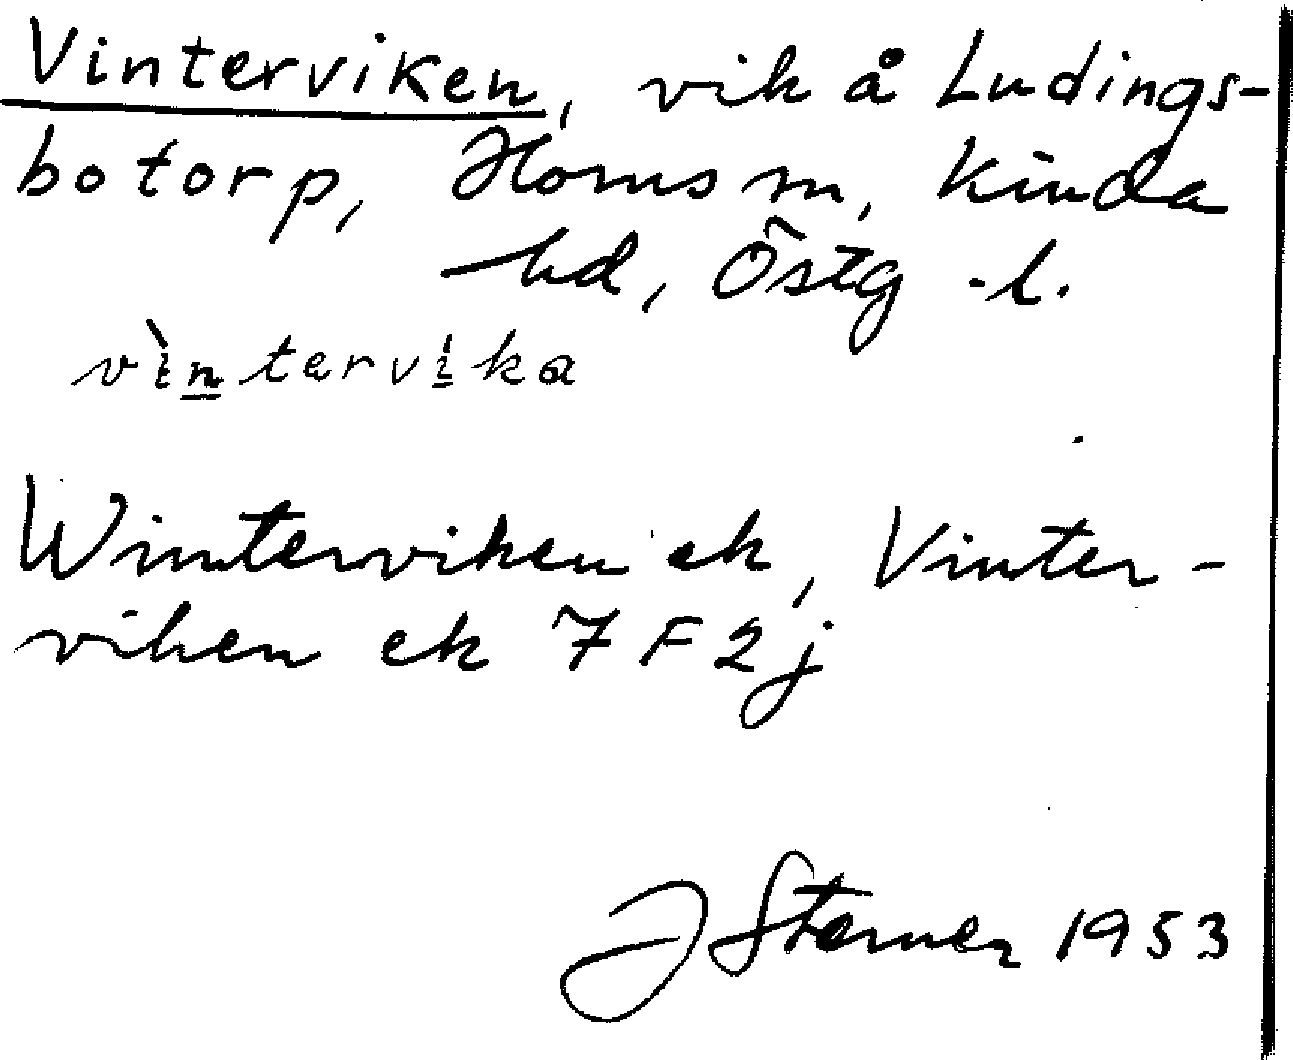 Vinterviken, vik å Ludings-
botorp, Horns sn, Kinda
hd, Östg. l.
vìntərvika
Winterviken ek, Vinter-
viken ek 7F2j
J Sterner 1953